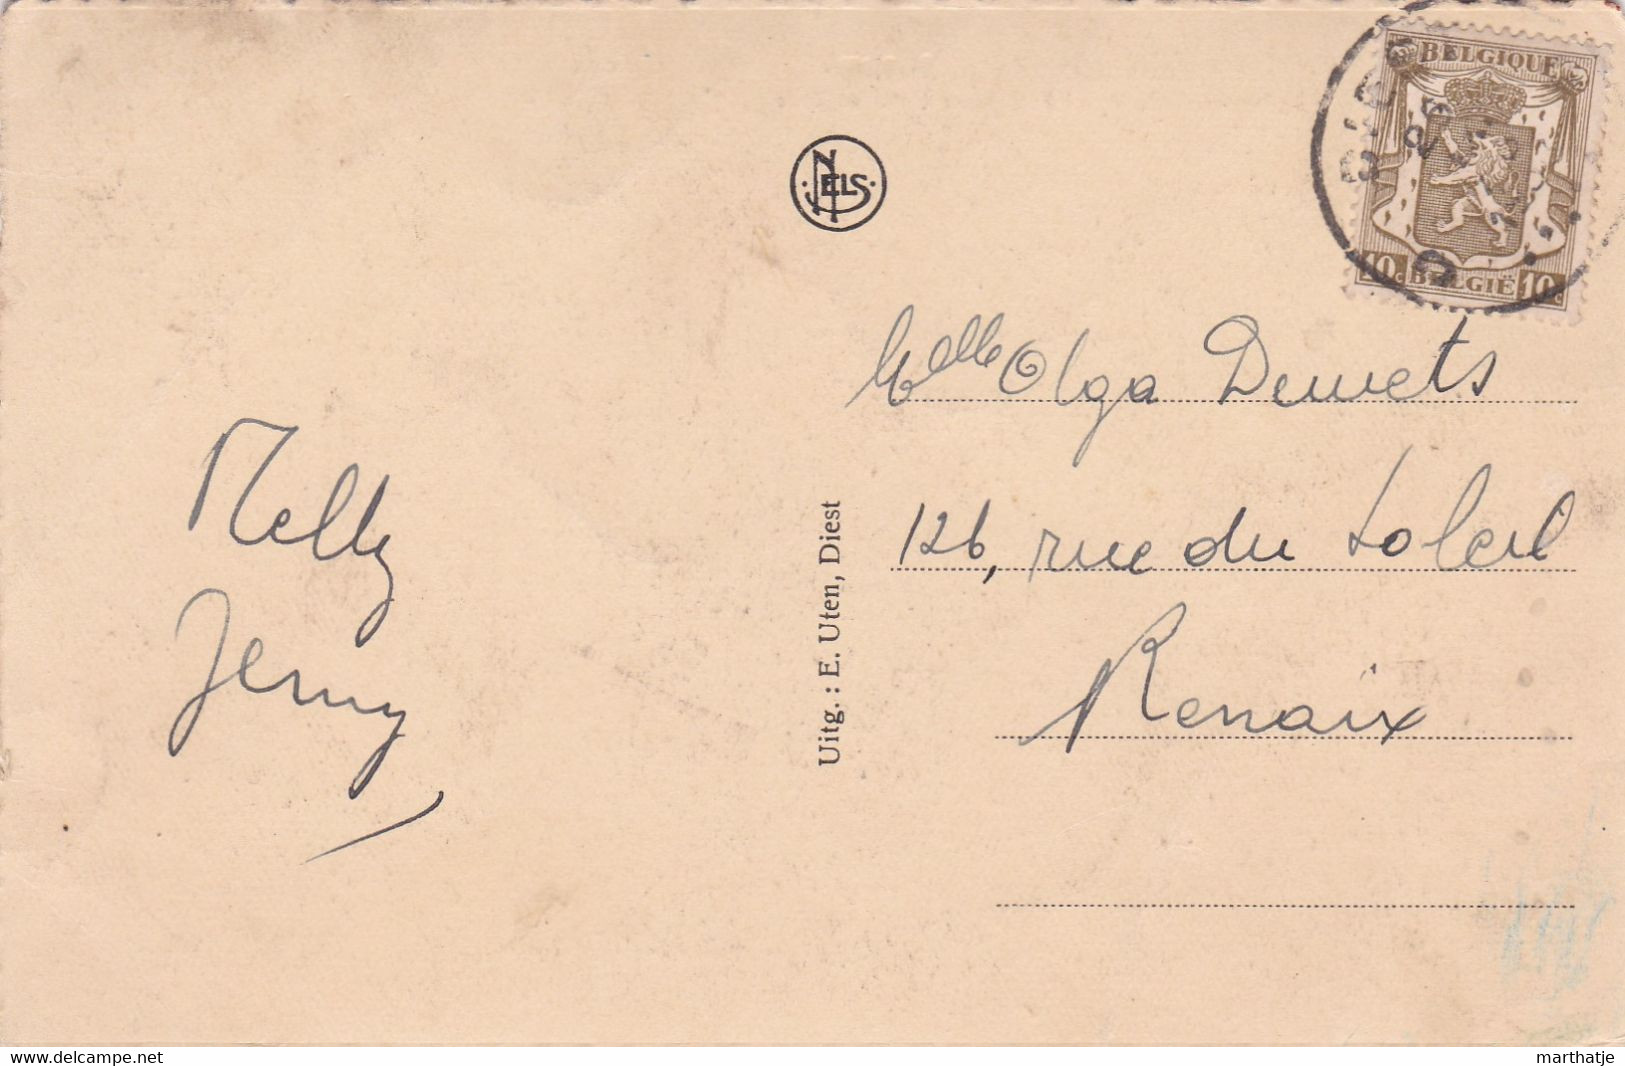 BELGIQUE
10c BELGIË 10c
NELS
Melle Olga Demets
126, rue du Soleil
Renaix
Nelly
Jenny
Uitg. : E. Uten, Diest
www.delcampe.net
marthatje